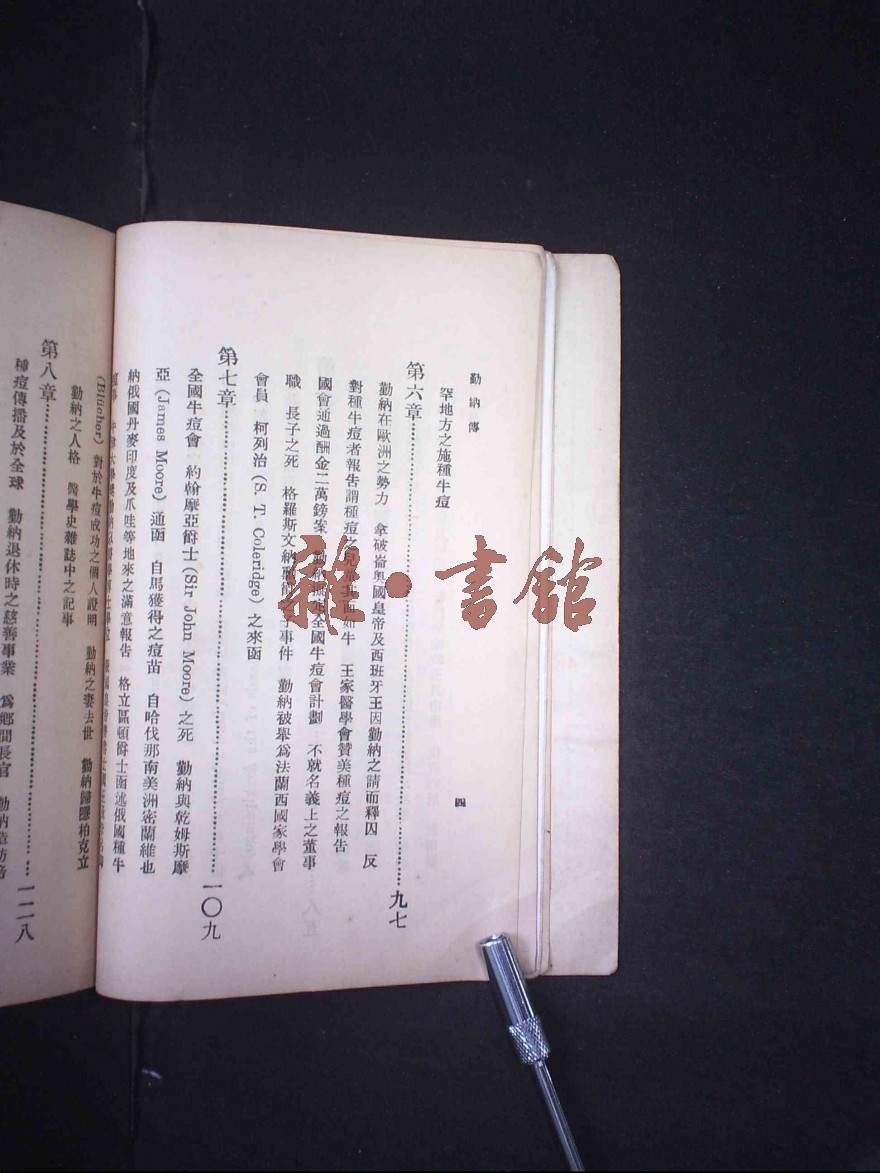 勤納傳
四
罕地方之施種牛痘
第六章……九七
勤納在歐洲之勢力 拿破崙奧國皇帝及西班牙王因勤納之請而釋囚 反
對種牛痘者報告謂種痘之兒 如牛 王家醫學會贊美種痘之報告
國會通過酬金二萬鎊案 全國牛痘會計劃 不就名義上之董事
職 長子之死 格羅斯文納 事件 勤納被舉爲法蘭西國家學會
會員 柯列治 (S. T. Coleridge) 之來函
第七章……一〇九
全國牛痘會 約翰摩亞爵士 (Sir John Moore) 之死 勤納與乾姆斯摩
亞 (James Moore) 通函 自馬獲得之痘苗 自哈伐那南美洲密蘭維也
納俄國丹麥印度及爪哇等地來之滿意報告 格立區頓爵士函述俄國種牛
(Blücher) 對於牛痘成功之個人證明 勤納之妻去世 勤納歸隱柏克立
勤納之人格 醫學史雜誌中之記事
第八章……一二八
種痘傳播及於全球 勤納退休時之慈善事業 爲鄉間長官
雜·書館